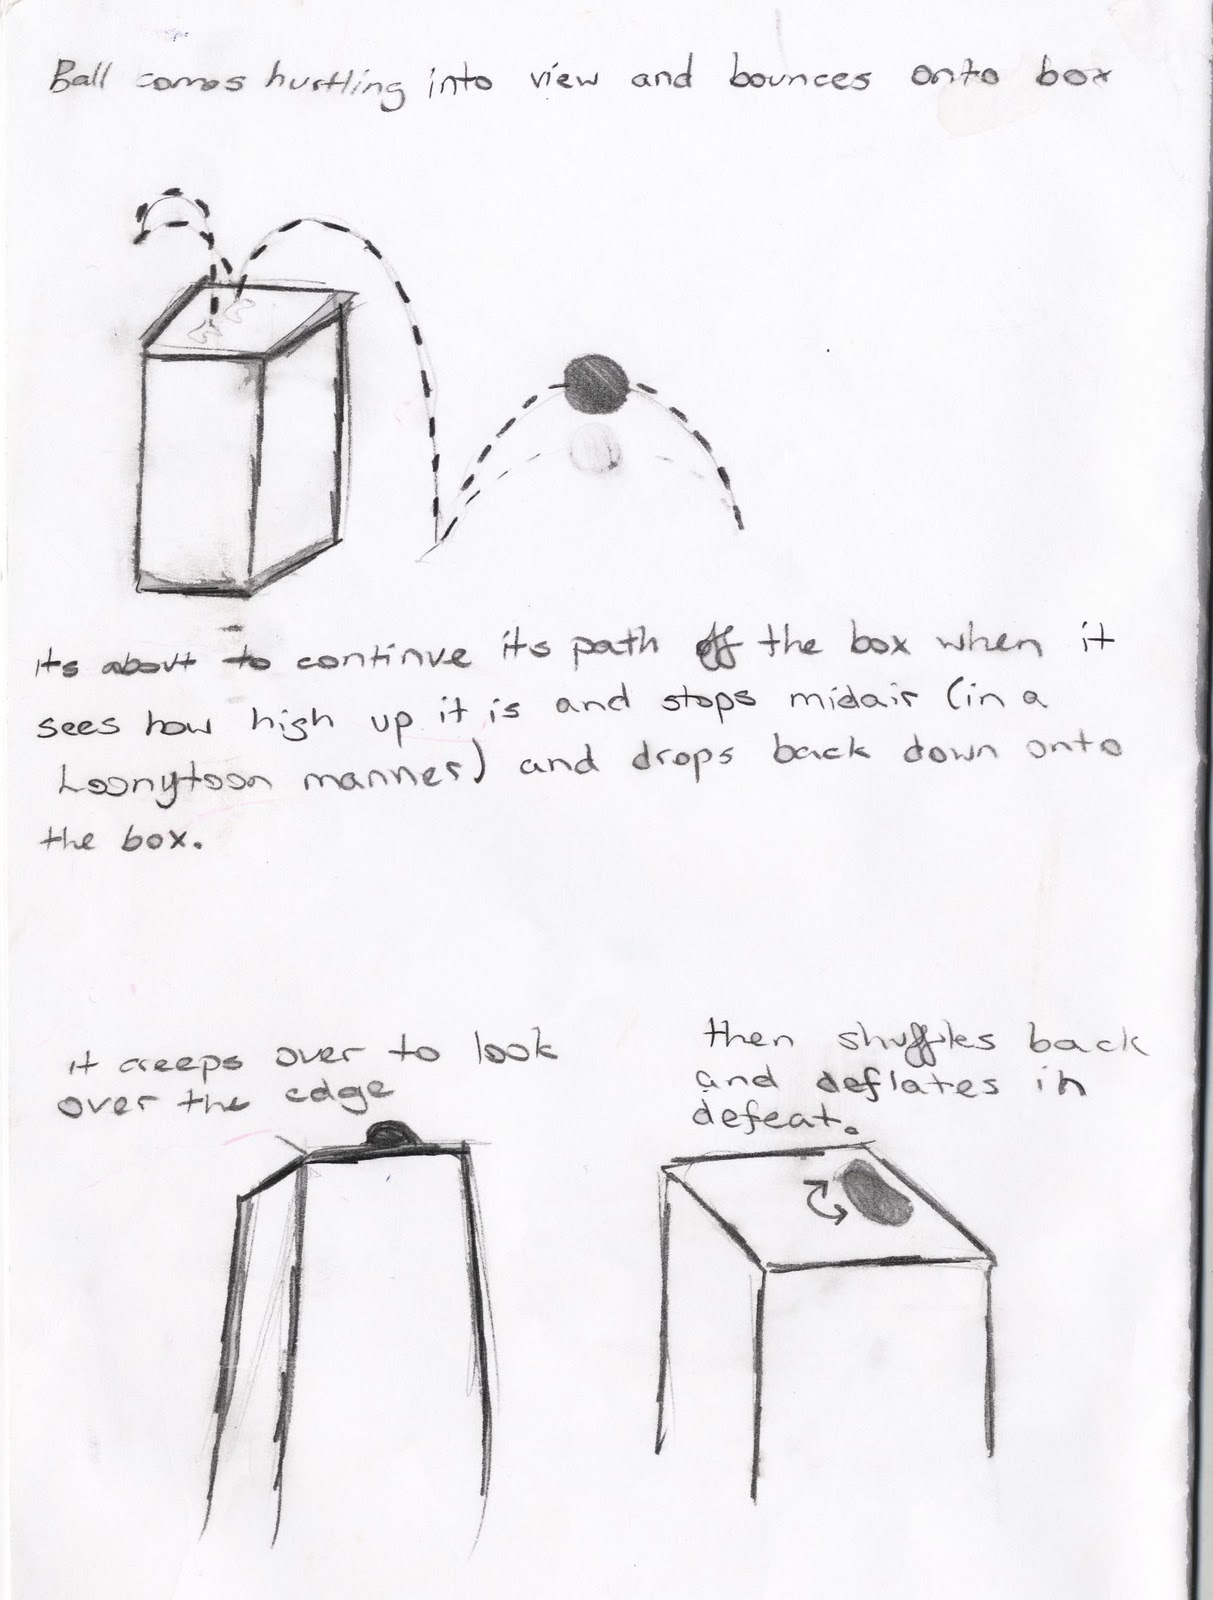 Ball comes hurtling into view and bounces onto box
its about to continue its path off the box when it
sees how high up it is and stops midair (in a
Loonytoon manner) and drops back down onto
the box.
it creeps over to look
over the edge
then shuffles back
and deflates in
defeat.